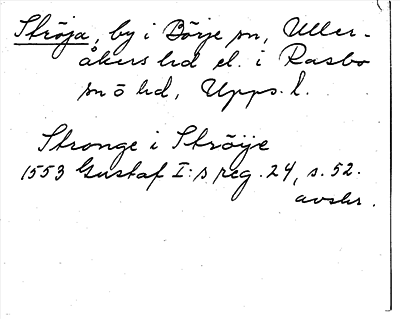 Ströja, by i Börje sn, Uller-
åkers hd el. i Rasbo
sn o hd, Upps. l.
Stronge i Ströije
1553 Gustaf I:s reg. 24, s. 52.
avskr.